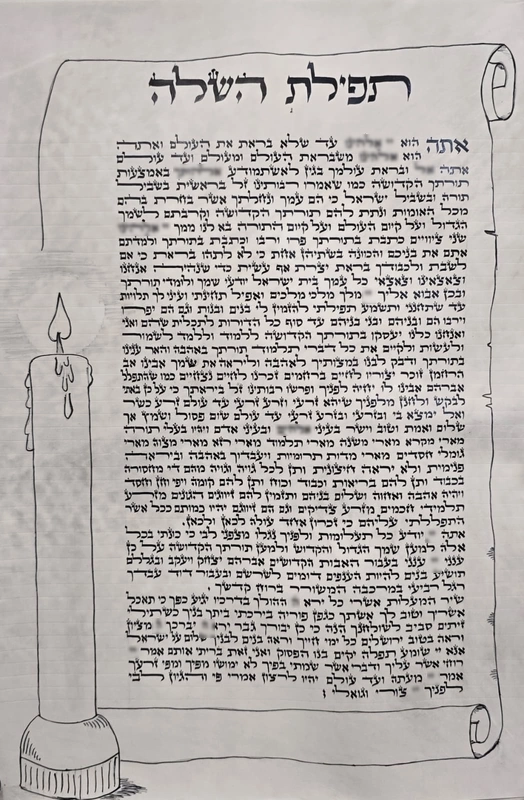 תפילת השלה
אתה הוא עד שלא בראת את העולם ואתה
הוא משבראת העולם ומעולם ועד עולם
אתה ובראת עולמך בגין לאשתמודע באמצעות
תורתך הקדושה כמו שאמרו רבותינו זל בראשית בשביל
תורה ובשביל ישראל כי הם עמך ונחלתך אשר בחרת בהם
מכל האומות ונתת להם תורתך הקדושה וקרבתם לשמך
הגדול ועל קיום העולם ועל קיום התורה בא לנו ממך
שני ציוויים כתבת בתורתך פרו ורבו וכתבת בתורתך ולמדתם
אתם את בניכם והכוונה בשתיהן אחת כי לא לתהו בראת כי אם
לשבת ולכבודך בראת יצרת אף עשית כדי שנהיה אנחנו
וצאצאינו וצאצאי כל עמך בית ישראל יודעי שמך ולומדי תורתך
ובכן אבוא אליך מלך מלכי המלכים ואפיל תחינתי ועיני לך תלויות
עד שתחנני ותשמע תפילתי להזמין לי בנים ובנות וגם הם יפרו
וירבו הם ובניהם ובני בניהם עד סוף כל הדורות לתכלית שהם ואני
ואנחנו כלנו יעסקו בתורתך הקדושה ללמוד וללמד לשמור
ולעשות ולקיים את כל דברי תלמוד תורתך באהבה והאר עינינו
בתורתך ודבק לבנו במצותיך לאהבה וליראה את שמך אבינו אב
הרחמן זוכר יצוריו לחיים ברחמים זכרנו לחיים נצחיים כמו שהתפלל
אברהם אבינו לו יחיה לפניך ופרשו רבותינו זל ביראתך כי על כן באתי
לבקש ולחנן מלפניך שיהא זרעי וזרע זרעי עד עולם זרע כשר
ואל ימצא בי ובזרעי ובזרע זרעי עד עולם שום פסול ושמץ אך
שלום ואמת וטוב וישר בעיני ובעיני אדם ויהיו בעלי תורה
מארי מקרא מארי משנה מארי תלמוד מארי רזא מארי מצוה מארי
גומלי חסדים מארי מדות תרומיות ויעבדוך באהבה וביראה
פנימית ולא יראה חיצונית ותן לכל גויה וגויה מהם די מחסורה
בכבוד ותן להם בריאות וכבוד וכוח ותן להם קומה ויפי וחן וחסד
ויהיה אהבה ואחוה ושלום ביניהם ותזמין להם זיווגים הגונים מזרע
תלמידי חכמים מזרע צדיקים וגם הם זיווגם יהיו כמותם ככל אשר
התפללתי עליהם כי זכרון אחד עולה לכאן ולכאן.
אתה יודע כל תעלומות ולפניך נגלו מצפוני לבי כי כונתי בכל
אלה למען שמך הגדול והקדוש ולמען תורתך הקדושה על כן
ענני ענני בעבור האבות הקדושים אברהם יצחק ויעקב ובגללם
תושיע בנים להיות הענפים דומים לשרשם ובעבור דוד עבדך
רגל רביעי במרכבה המשורר ברוח קדשך.
שיר המעלות אשרי כל ירא ההולך בדרכיו יגיע כפך כי תאכל
אשריך וטוב לך אשתך כגפן פוריה בירכתי ביתך בניך כשתילי
זיתים סביב לשולחנך הנה כי כן יבורך גבר ירא יברכך מציון
וראה בטוב ירושלים כל ימי חייך וראה בנים לבניך שלום על ישראל
אנא יי שומע תפלה יקוים בנו הפסוק ואני זאת בריתי אותם אמר
רוחי אשר עליך ודברי אשר שמתי בפיך לא ימושו מפיך ומפי זרעך
אמר מעתה ועד עולם יהיו לרצון אמרי פי והגיון לבי
לפניך צורי וגואלי